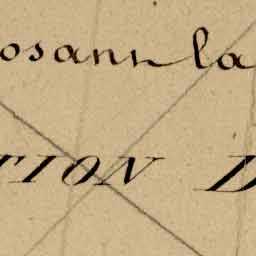 osant la
TION D